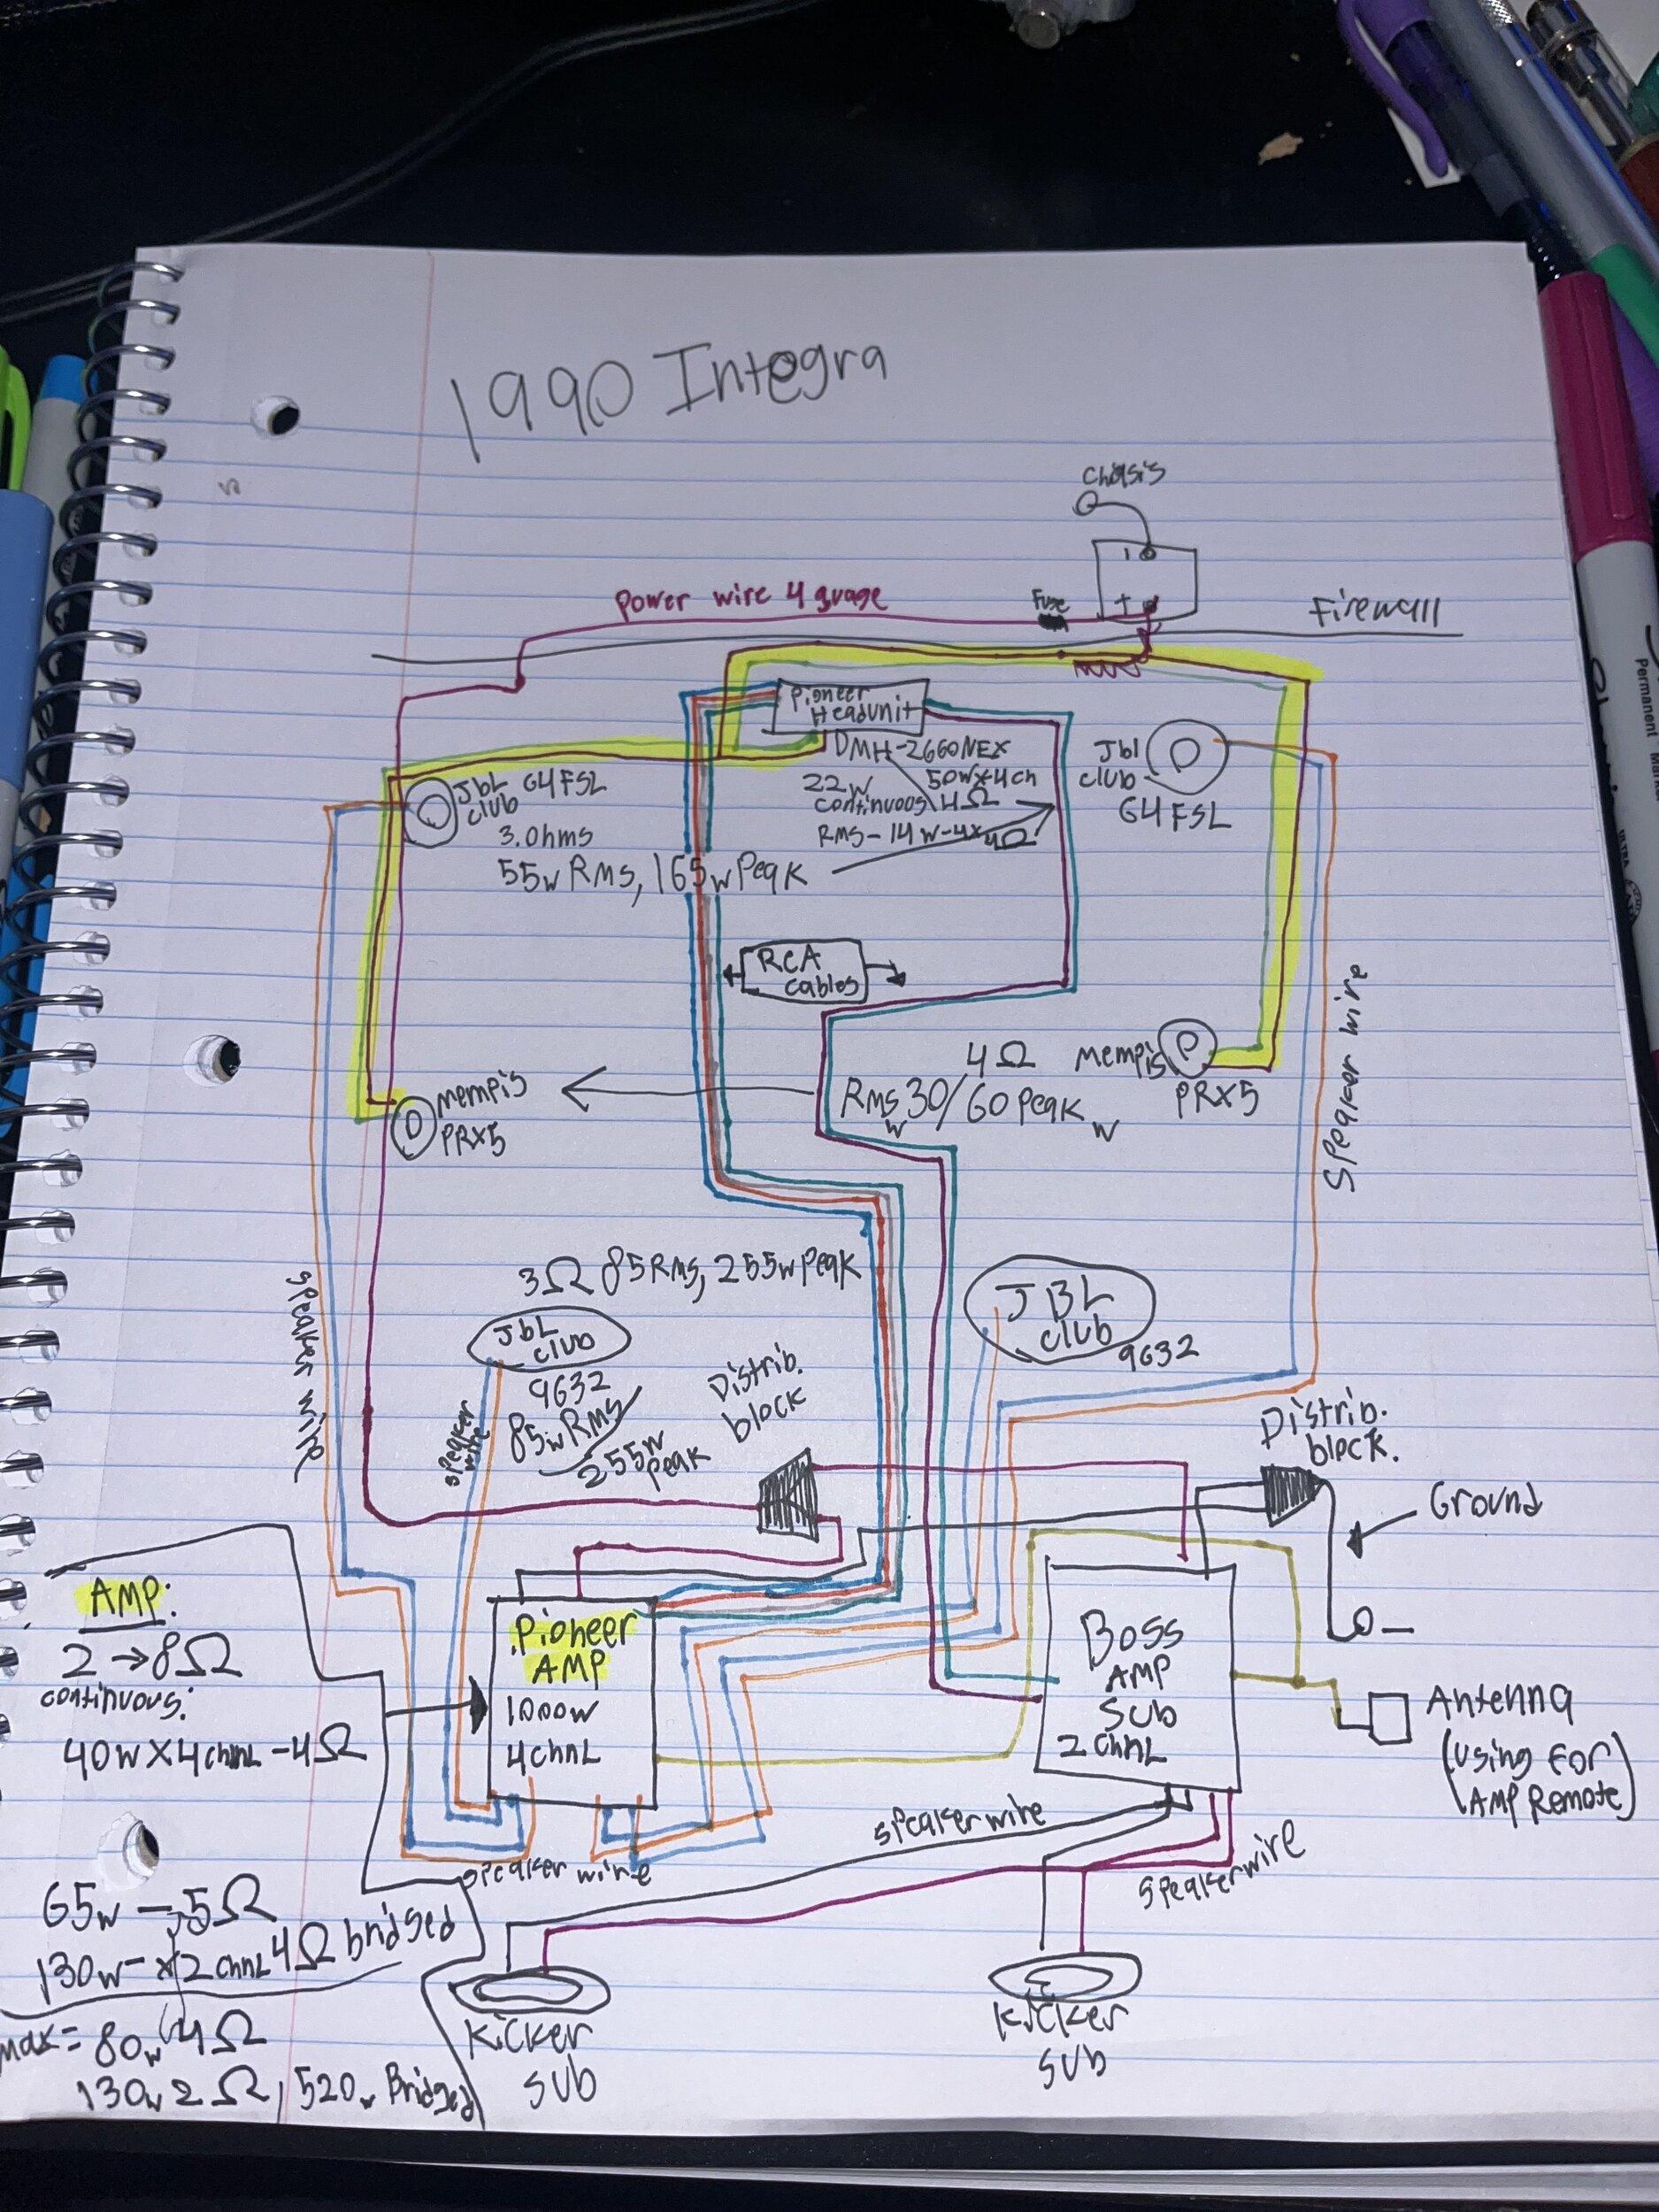 1990 Integra
Chasis
Fuse
power wire 4 guage
Firewall
+
Pioneer
Headunit
DMH-2660NEX
22w 50wx4ch
continuous 4Ω
RMS-14w-4x4Ω
Jbl
club
64FSL
JbL 64FSL
club
3.0hms
55w Rms, 165w Peak
RCA
cables
4Ω
Rms 30/60 Peak
w w
Mempis
PRX5
mempis
PRX5
Speaker wire
speaker wire
3Ω 85Rms, 255w Peak
JbL
club
9632
85w Rms/
255w
peak
speaker
wire
JBL
club
9632
Distrib.
block
Distrib.
block.
Ground
-
AMP:
2→8Ω
continuous:
40wX4chnnL-4Ω
Pioneer
AMP
1000w
4chnL
Boss
AMP
Sub
2 chnL
Antenna
(using For
AMP Remote)
speaker wire
speaker wire
speakerwire
65w-.5Ω
130w-x2chnnL 4Ω bridged
max= 80w 4Ω
130w 2Ω, 520w Bridged
Kicker
sub
Kicker
sub
Permanent